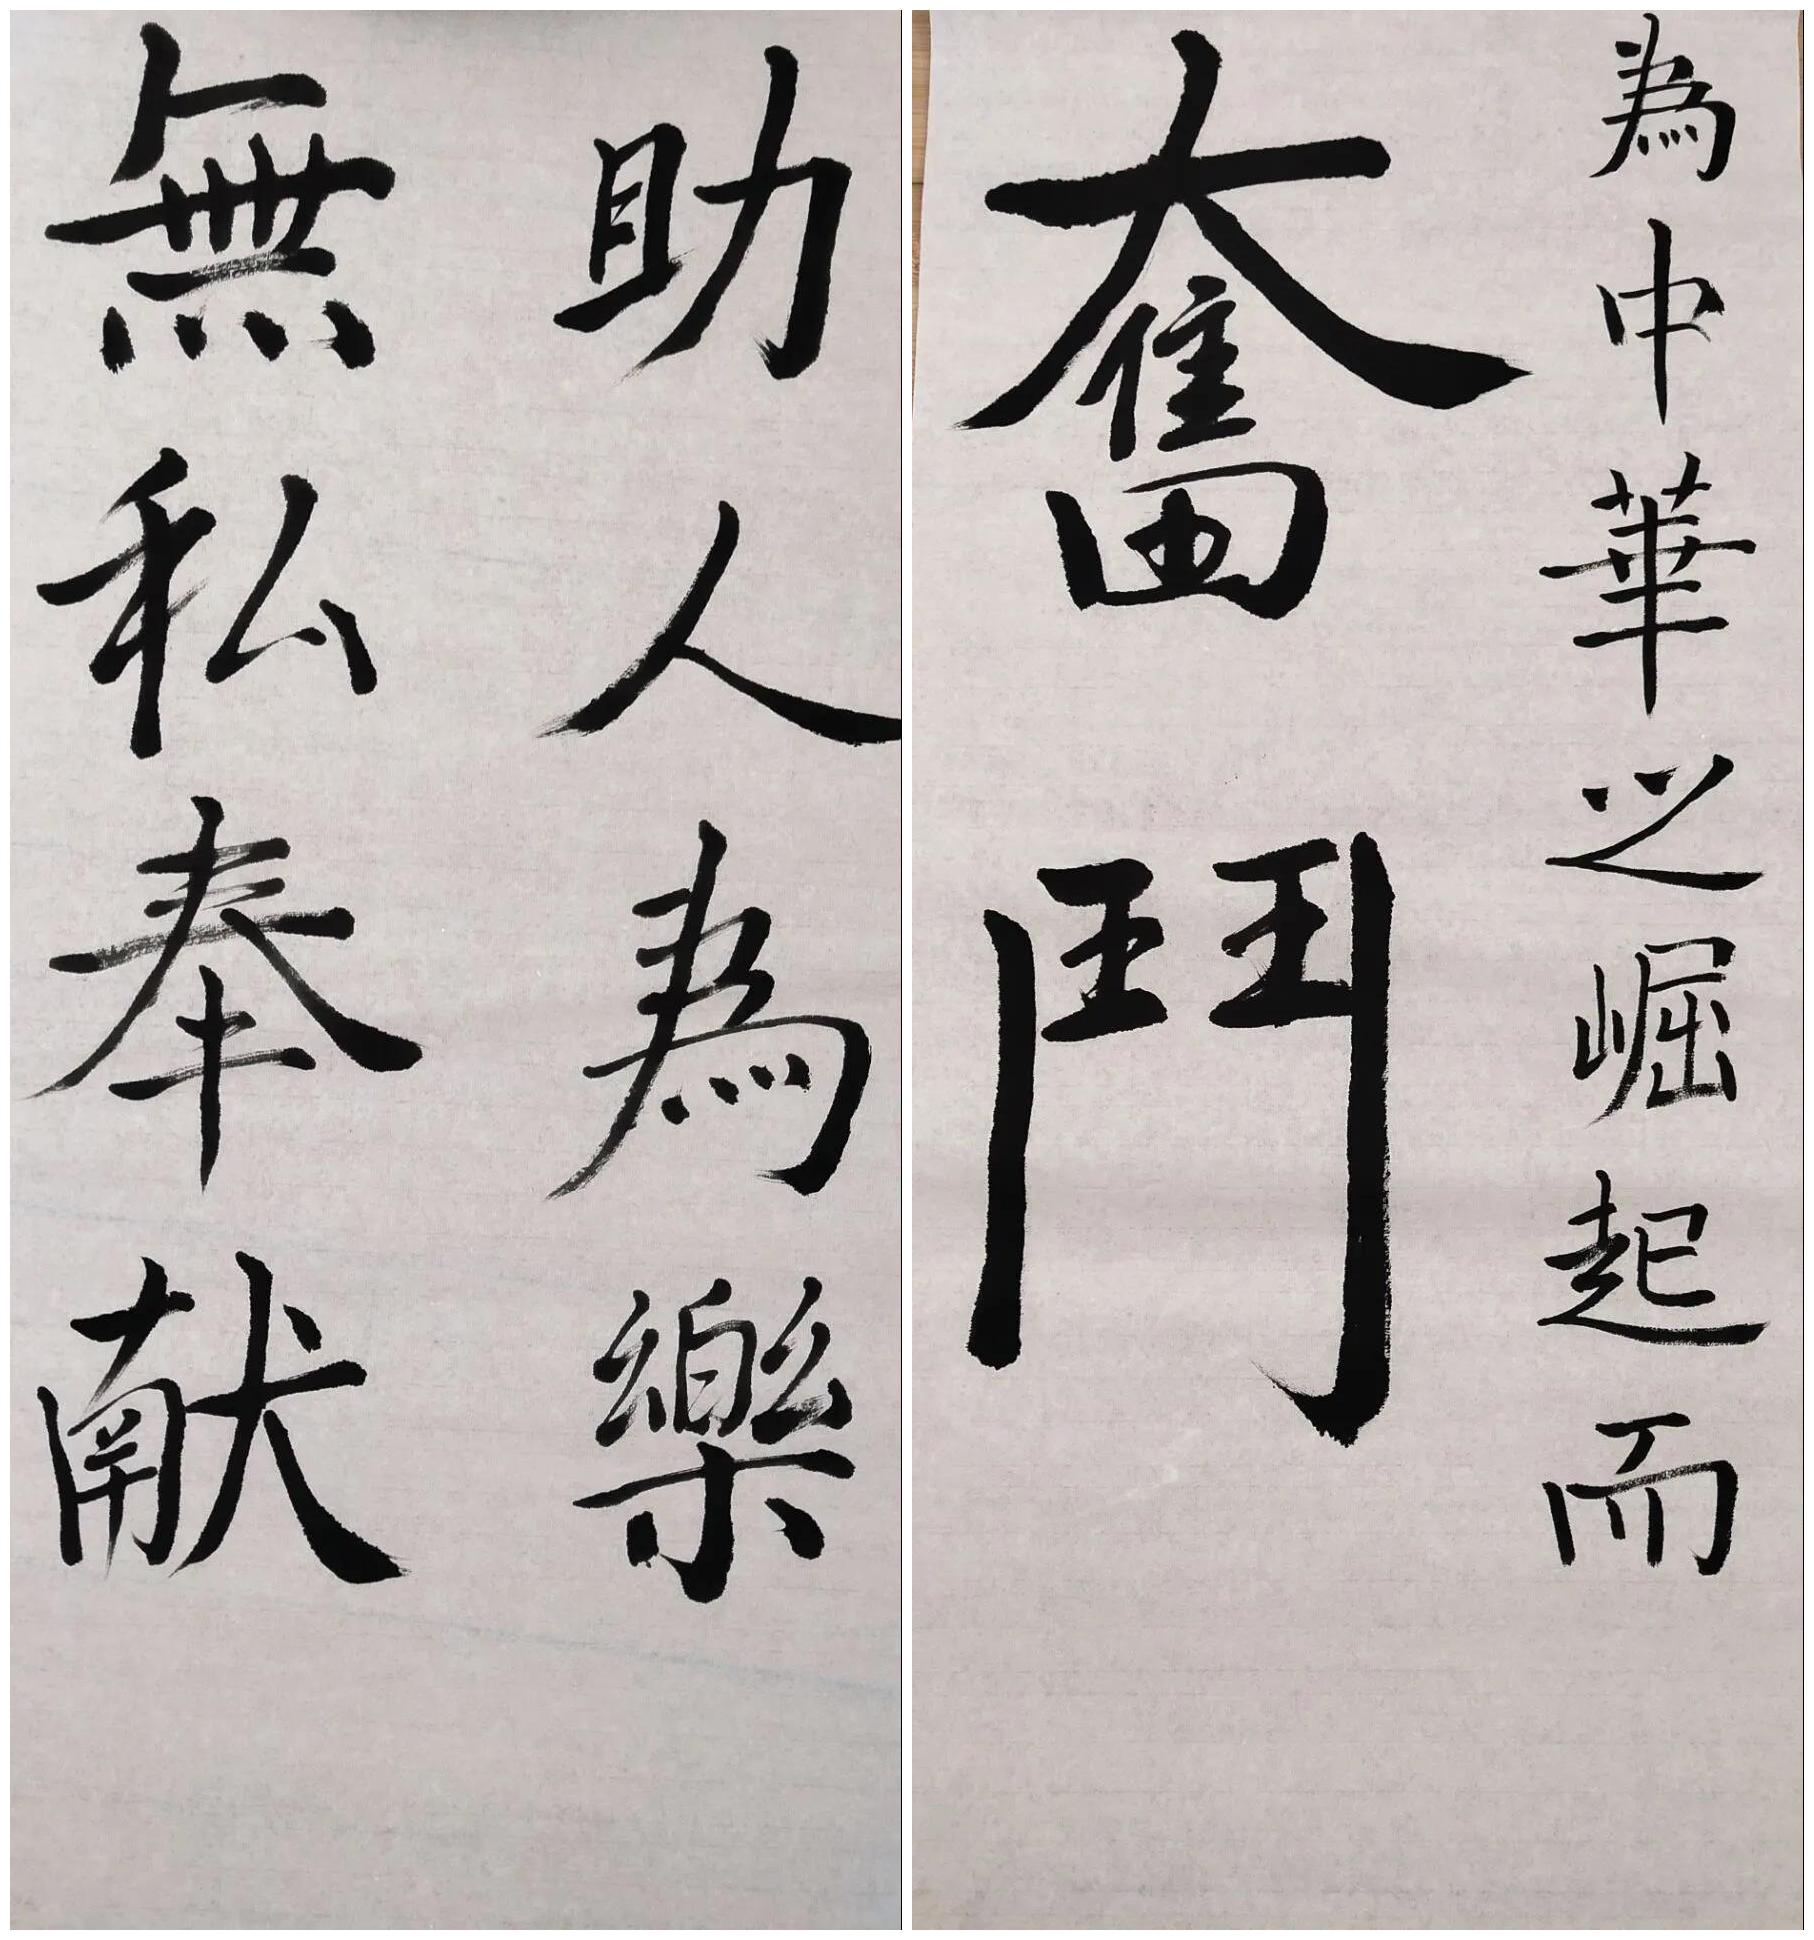 助人為樂
無私奉献
為中華之崛起而
奮鬥